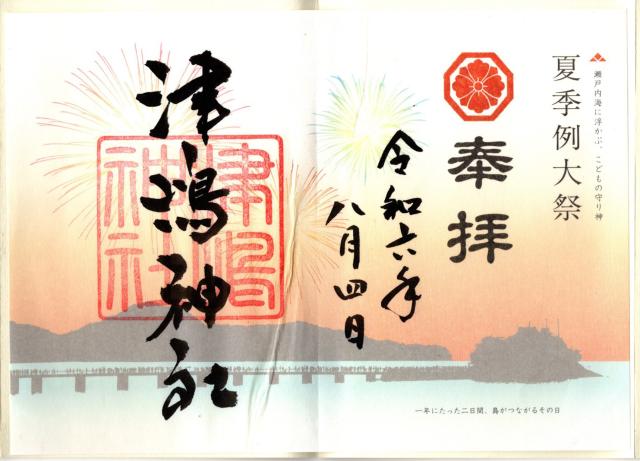 瀬戸内海に浮かぶ、こどもの守り神
夏季例大祭
奉拝
令和六年
八月四日
津嶋神社
津嶋神社
一年にたった二日間、島がつながるその日